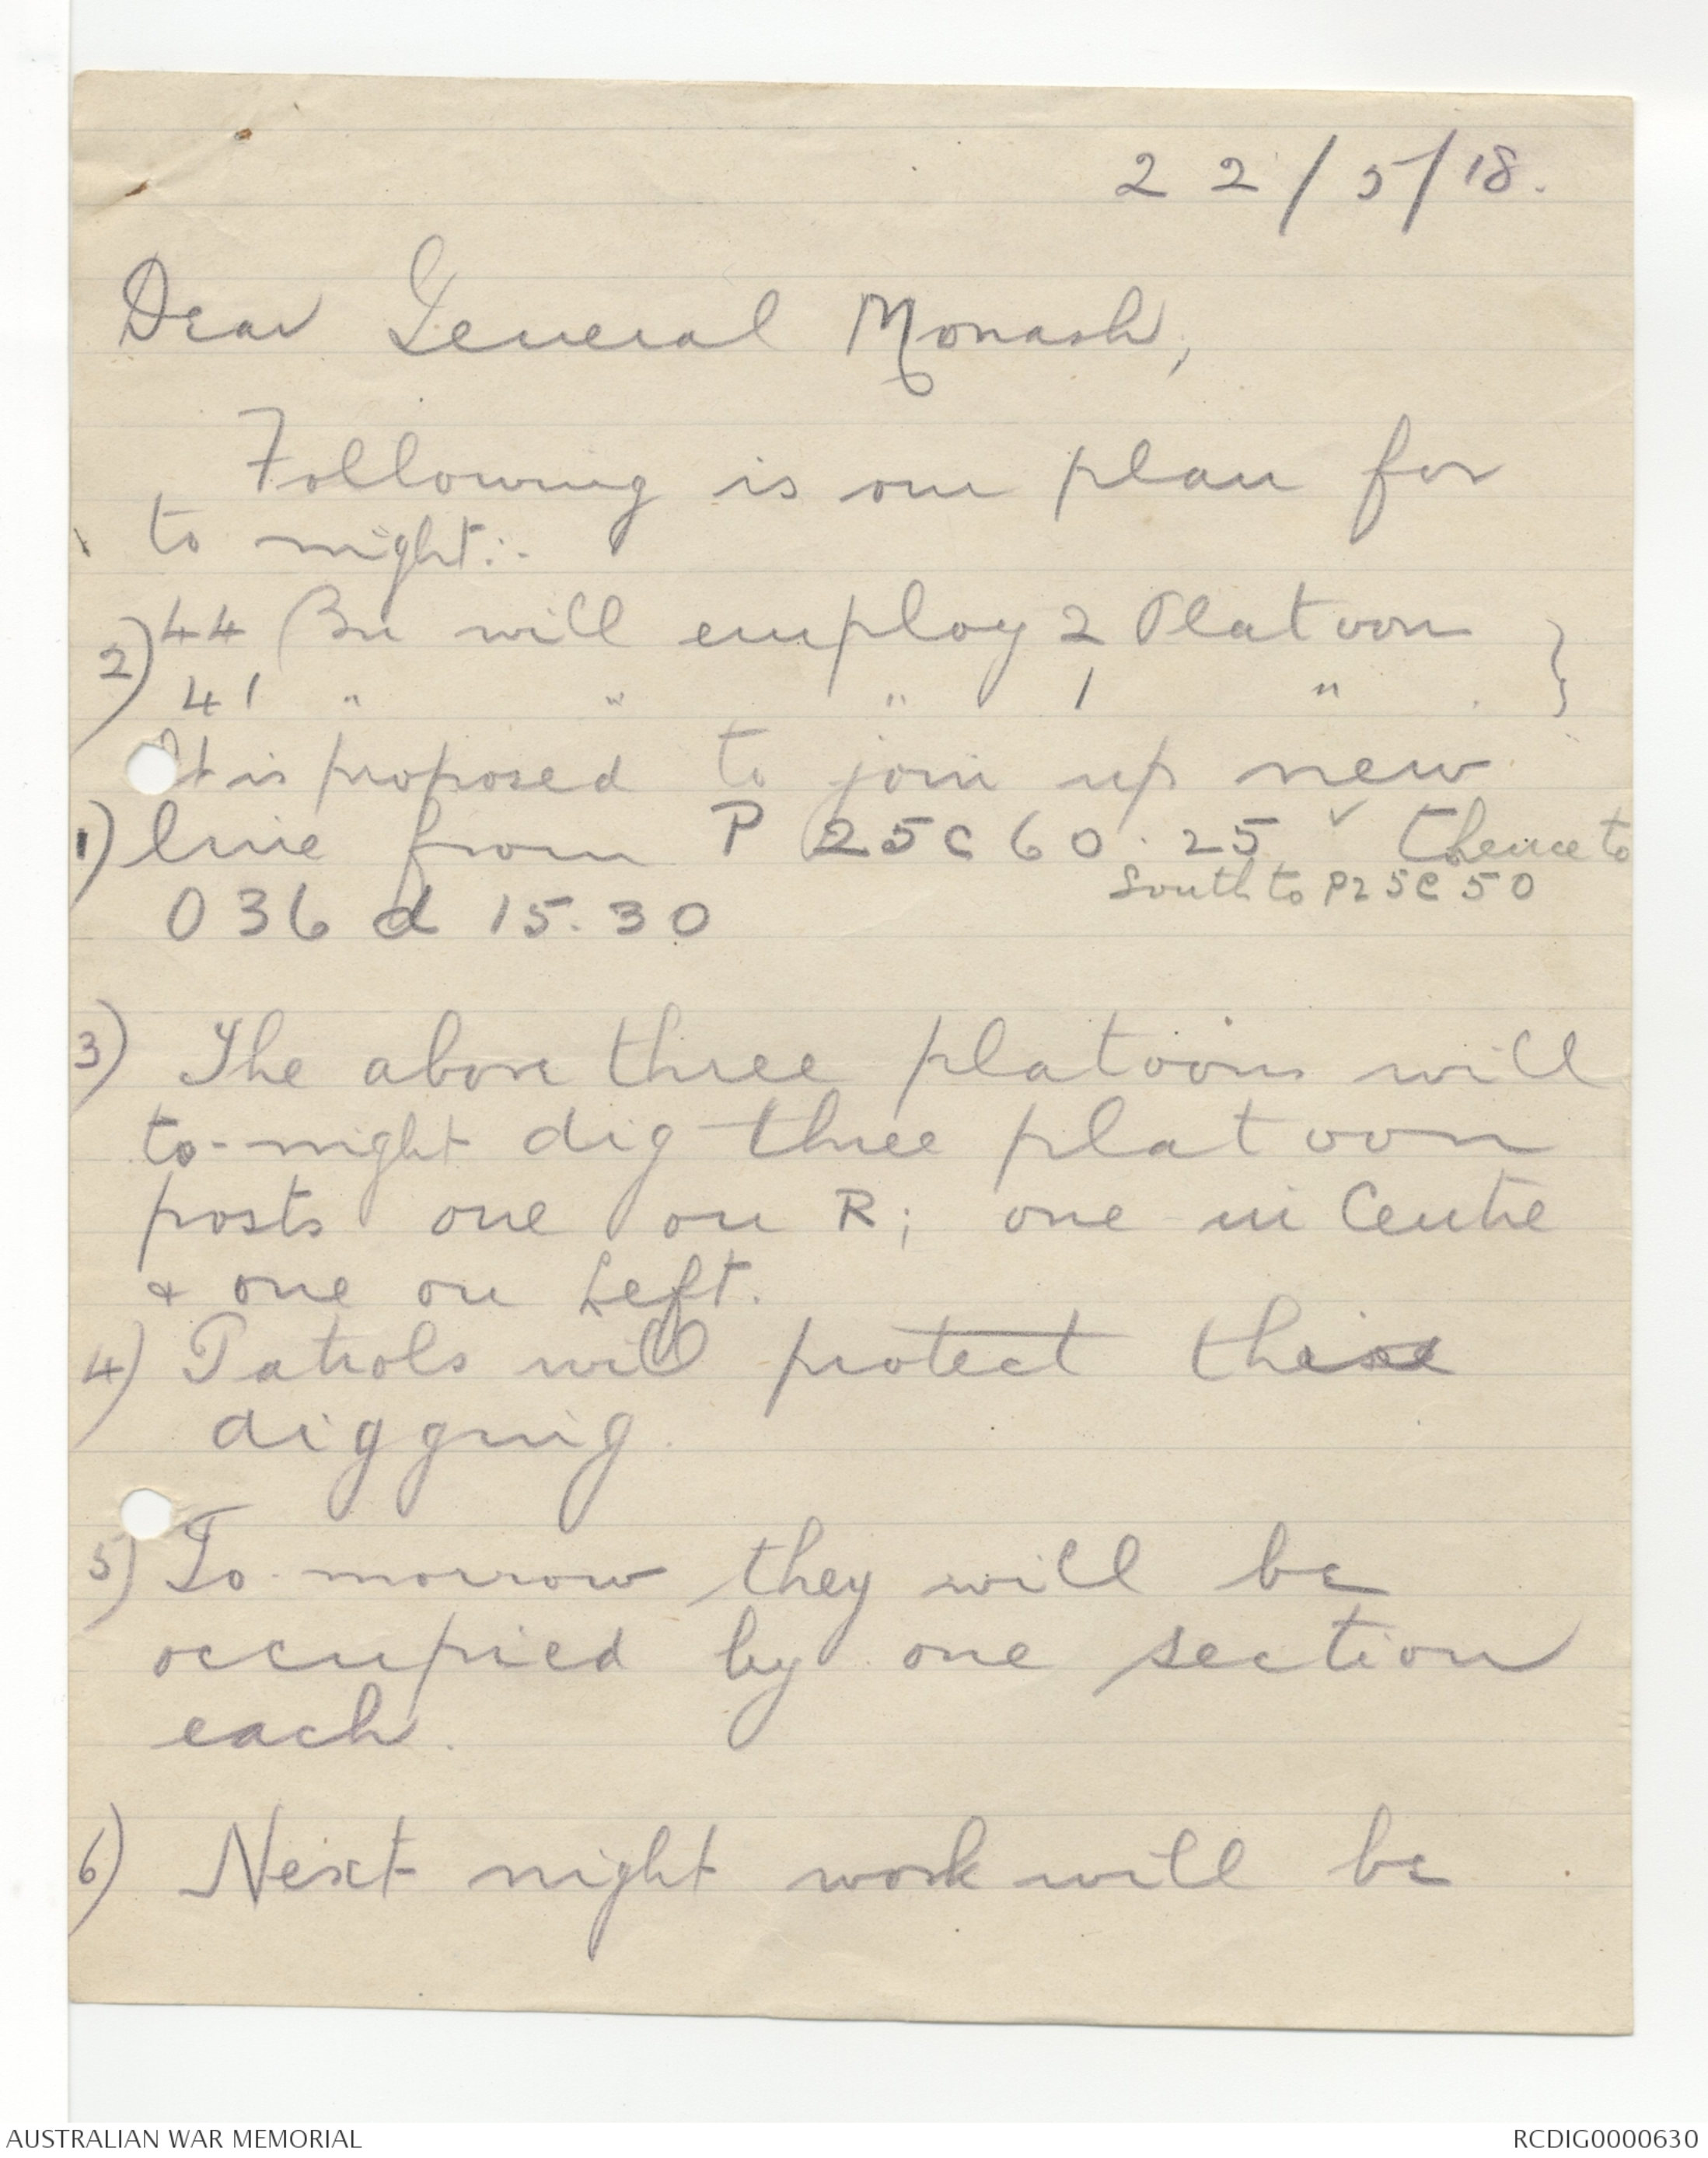 22/5/18.
Dear General Monash,
Following is our plan for
to night:-
2) 44 Bn will employ 2 Platoon }
41 " " " 1 " }
It is proposed to join up new
1) line from P 25 C 60.25 ✓ thence to
South to P25C50
O 36 d 15.30
3) The above three platoons will
to-night dig three platoon
posts one on R; one in Centre
& one on Left.
4) Patrols will protect these
digging.
5) To-morrow they will be
occupied by one section
each.
6) Next night work will be
AUSTRALIAN WAR MEMORIAL
RCDIG0000630